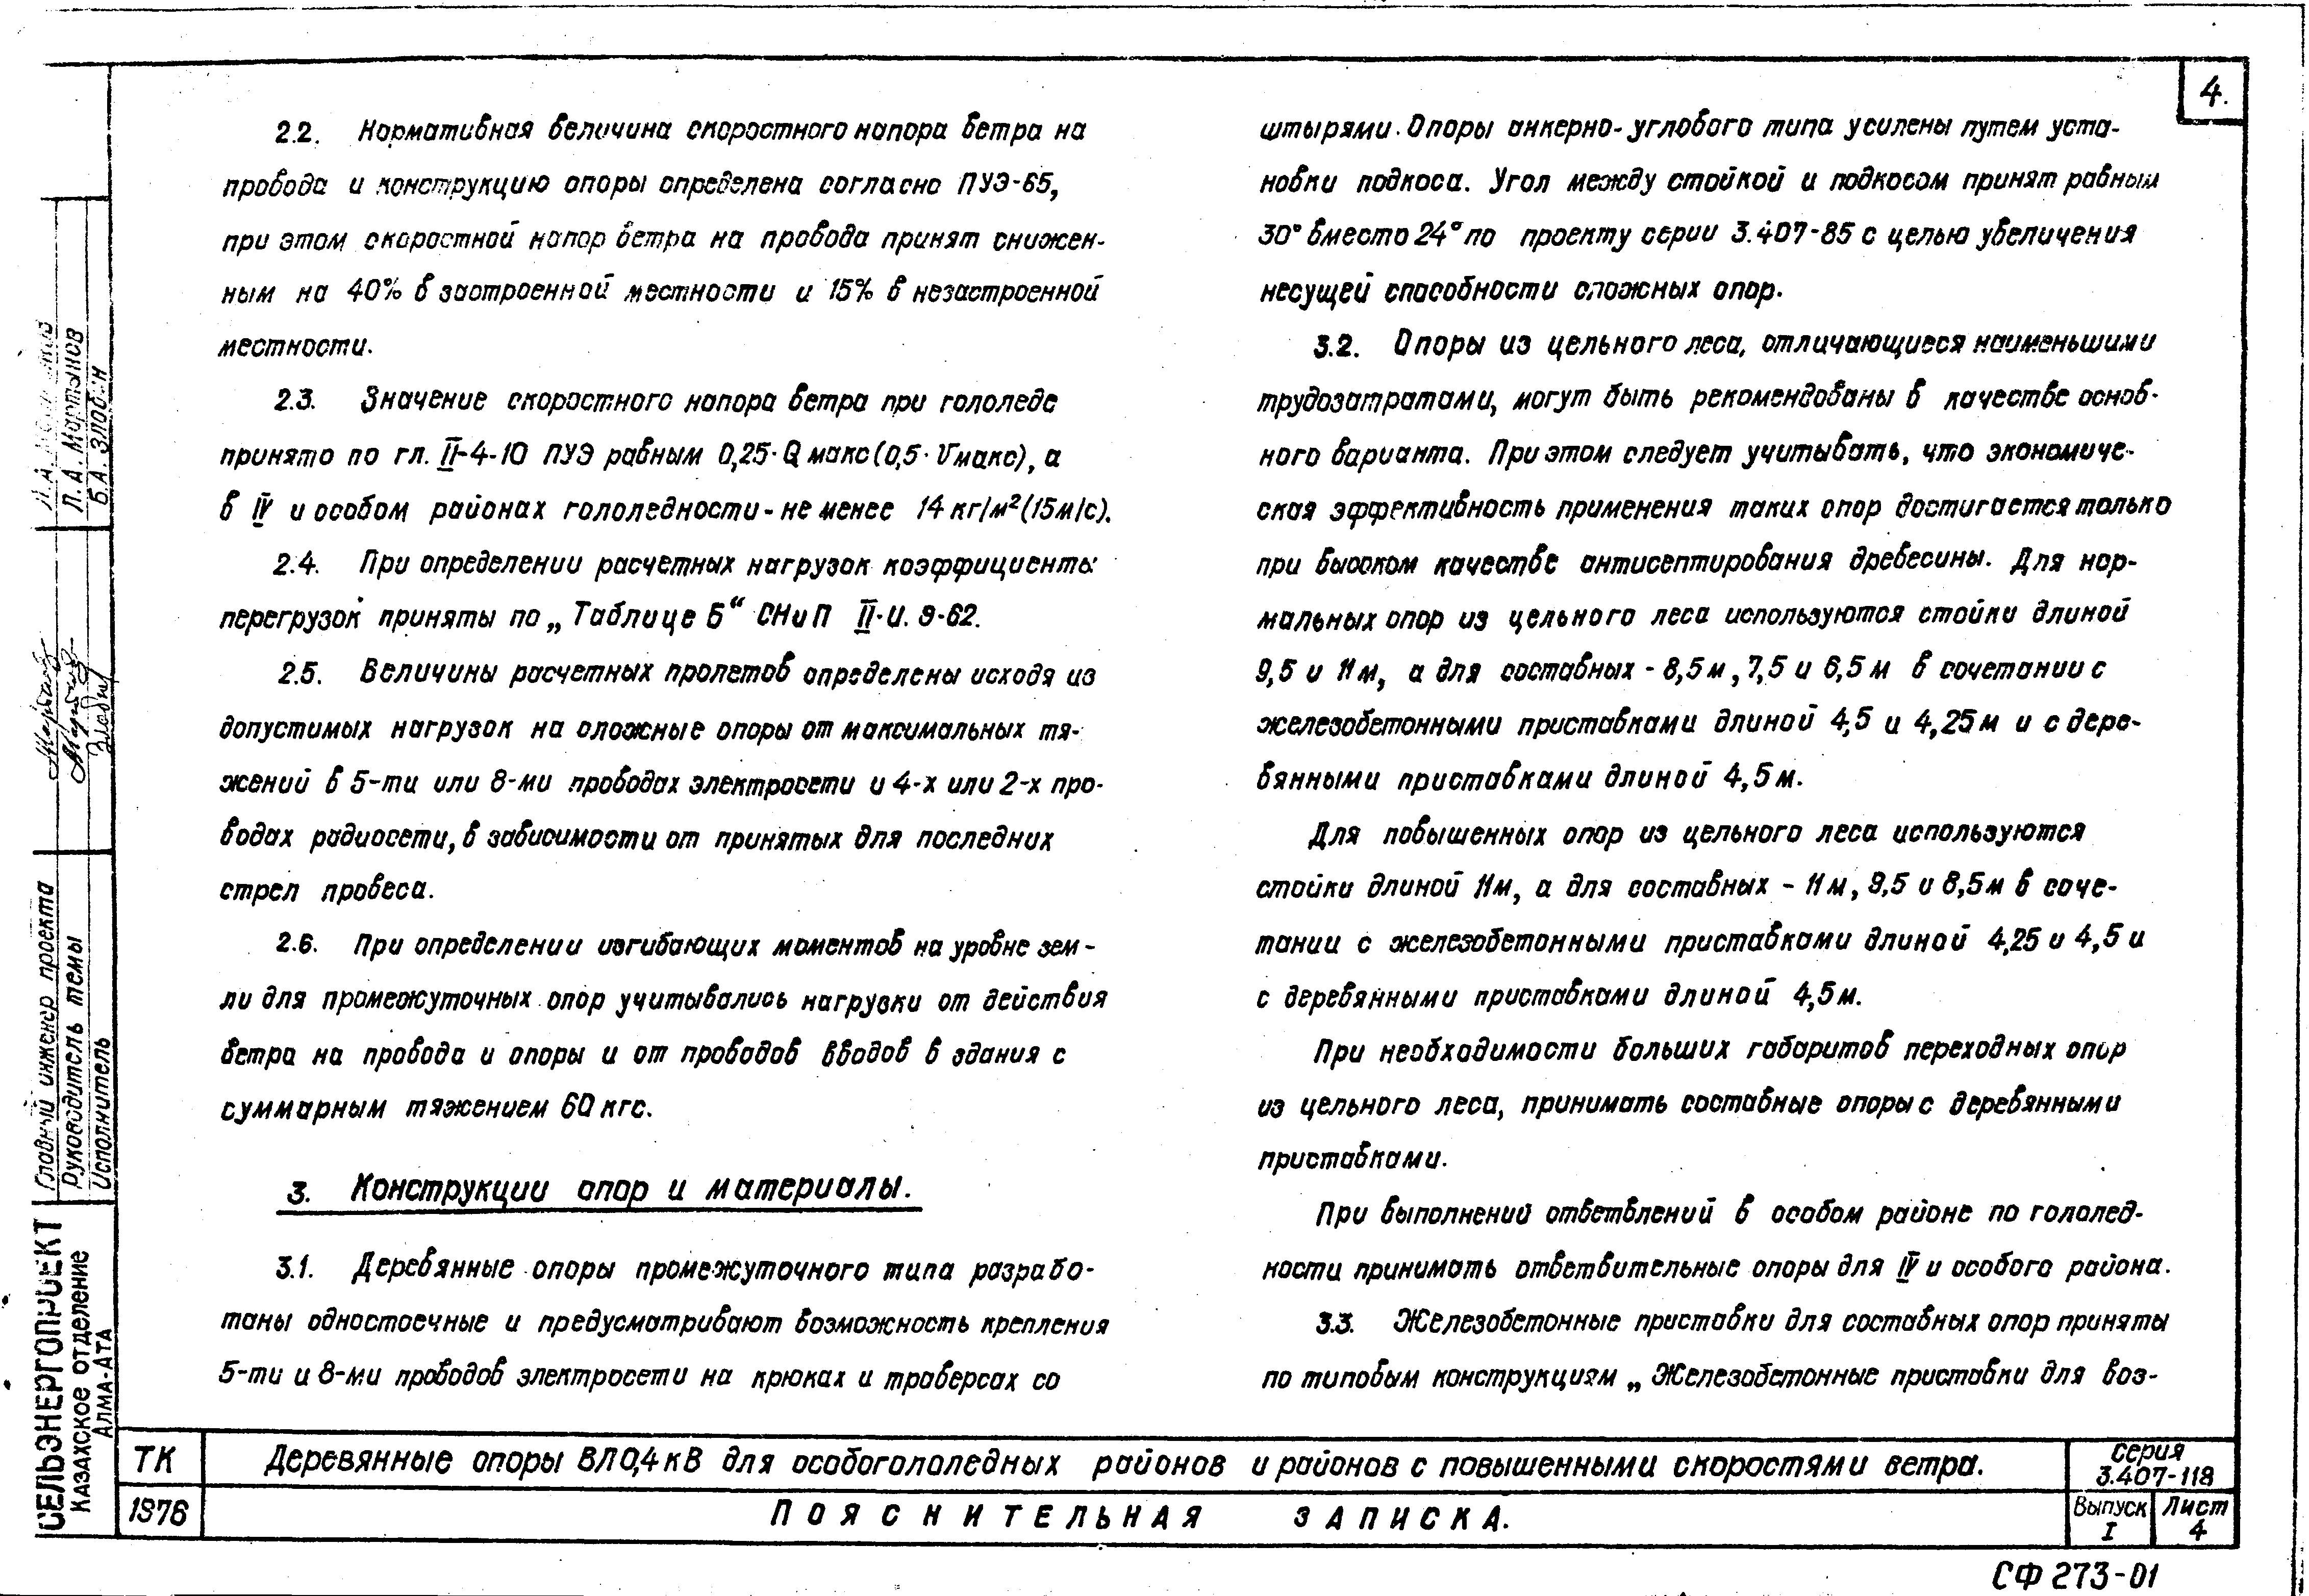 4.
2.2. Нормативная величина скоростного напора ветра на
провода и конструкцию опоры определена согласно ПУЭ-65,
при этом скоростной напор ветра на провода принят снижен-
ным на 40% в застроенной местности и 15% в незастроенной
местности.
2.3. Значение скоростного напора ветра при гололеде
принято по гл. II-4-10 ПУЭ равным 0,25·Q макс (0,5·Vмакс), а
в IV и особом районах гололедности - не менее 14 кг/м² (15м/с).
2.4. При определении расчетных нагрузок коэффициенты
перегрузок приняты по „Таблице Б“ СНиП II-И. 9-62.
2.5. Величины расчетных пролетов определены исходя из
допустимых нагрузок на сложные опоры от максимальных тя-
жений в 5-ти или 8-ми проводах электросети и 4-х или 2-х про-
водах радиосети, в зависимости от принятых для последних
стрел провеса.
2.6. При определении изгибающих моментов на уровне зем-
ли для промежуточных опор учитывались нагрузки от действия
ветра на провода и опоры и от проводов вводов в здания с
суммарным тяжением 60 кгс.
3. Конструкции опор и материалы.
3.1. Деревянные опоры промежуточного типа разрабо-
таны одностоечные и предусматривают возможность крепления
5-ти и 8-ми проводов электросети на крюках и траверсах со
штырями. Опоры анкерно-углового типа усилены путем уста-
новки подкоса. Угол между стойкой и подкосом принят равным
30° вместо 24° по проекту серии 3.407-85 с целью увеличения
несущей способности сложных опор.
3.2. Опоры из цельного леса, отличающиеся наименьшими
трудозатратами, могут быть рекомендованы в качестве основ-
ного варианта. При этом следует учитывать, что экономиче-
ская эффективность применения таких опор достигается только
при высоком качестве антисептирования древесины. Для нор-
мальных опор из цельного леса используются стойки длиной
9,5 и 11м, а для составных - 8,5м, 7,5 и 6,5м в сочетании с
железобетонными приставками длиной 4,5 и 4,25м и с дере-
вянными приставками длиной 4,5м.
Для повышенных опор из цельного леса используются
стойки длиной 11м, а для составных - 11м, 9,5 и 8,5м в соче-
тании с железобетонными приставками длиной 4,25 и 4,5 и
с деревянными приставками длиной 4,5м.
При необходимости больших габаритов переходных опор
из цельного леса, принимать составные опоры с деревянными
приставками.
При выполнений ответвлений в особом районе по гололед-
ности принимать ответвительные опоры для IV и особого района.
3.3. Железобетонные приставки для составных опор приняты
по типовым конструкциям „Железобетонные приставки для воз-
Главный инженер проекта Л.А.
Руководитель темы Л.А. Мартынов
Исполнитель Б.А. Злобин
СЕЛЬЭНЕРГОПРОЕКТ
КАЗАХСКОЕ ОТДЕЛЕНИЕ
АЛМА-АТА
ТК
1976
Деревянные опоры ВЛ0,4кВ для особогололедных районов и районов с повышенными скоростями ветра.
ПОЯСНИТЕЛЬНАЯ ЗАПИСКА.
серия
3.407-118
Выпуск Лист
I 4
СФ 273-01